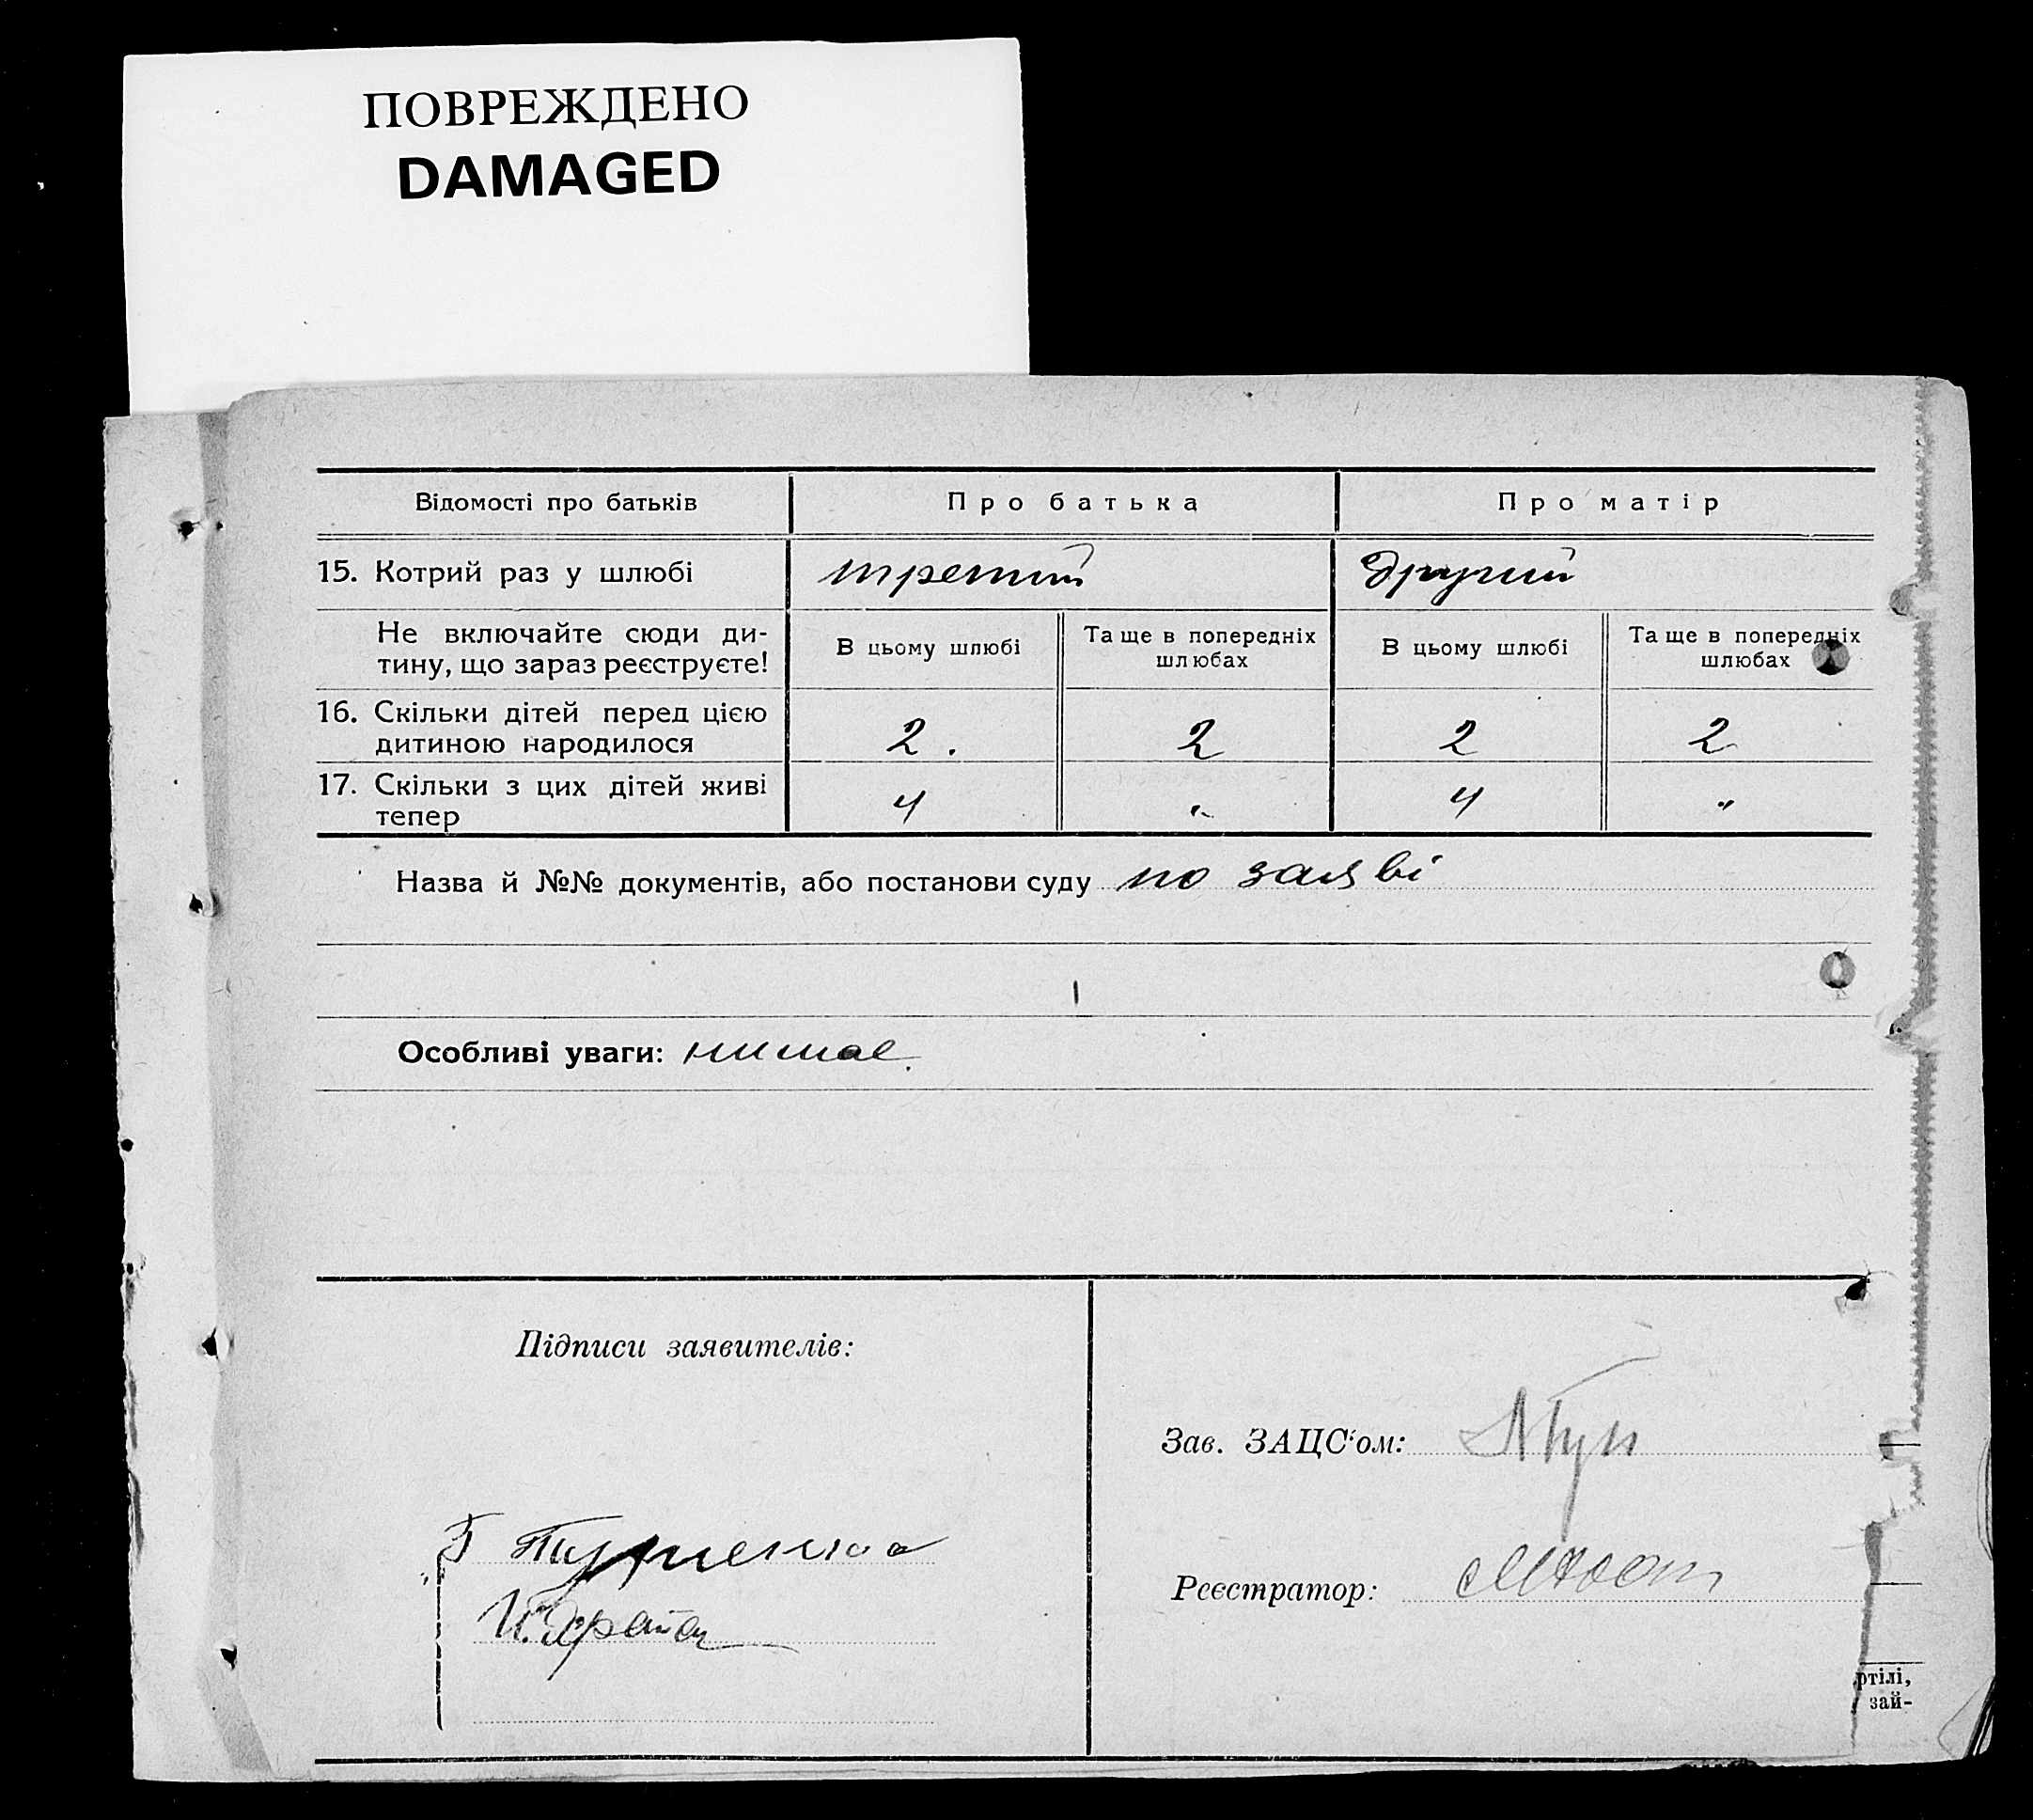 ПОВРЕЖДЕНО
DAMAGED
Відомості про батьків Про батька Про матір
15. Котрий раз у шлюбі третий другий
Не включайте сюди ди-
тину, що зараз реєструєте!
В цьому шлюбі Та ще в попередніх шлюбах В цьому шлюбі Та ще в попередніх шлюбах
16. Скільки дітей перед цією
дитиною народилося 2. 2 2 2
17. Скільки з цих дітей живі
тепер 4 " 4 "
Назва й №№ документів, або постанови суду по заяві
Особливі уваги: нимае.
Підписи заявителів:
Зав. ЗАЦС‘ом:
Реєстратор:
ртілі,
зай-